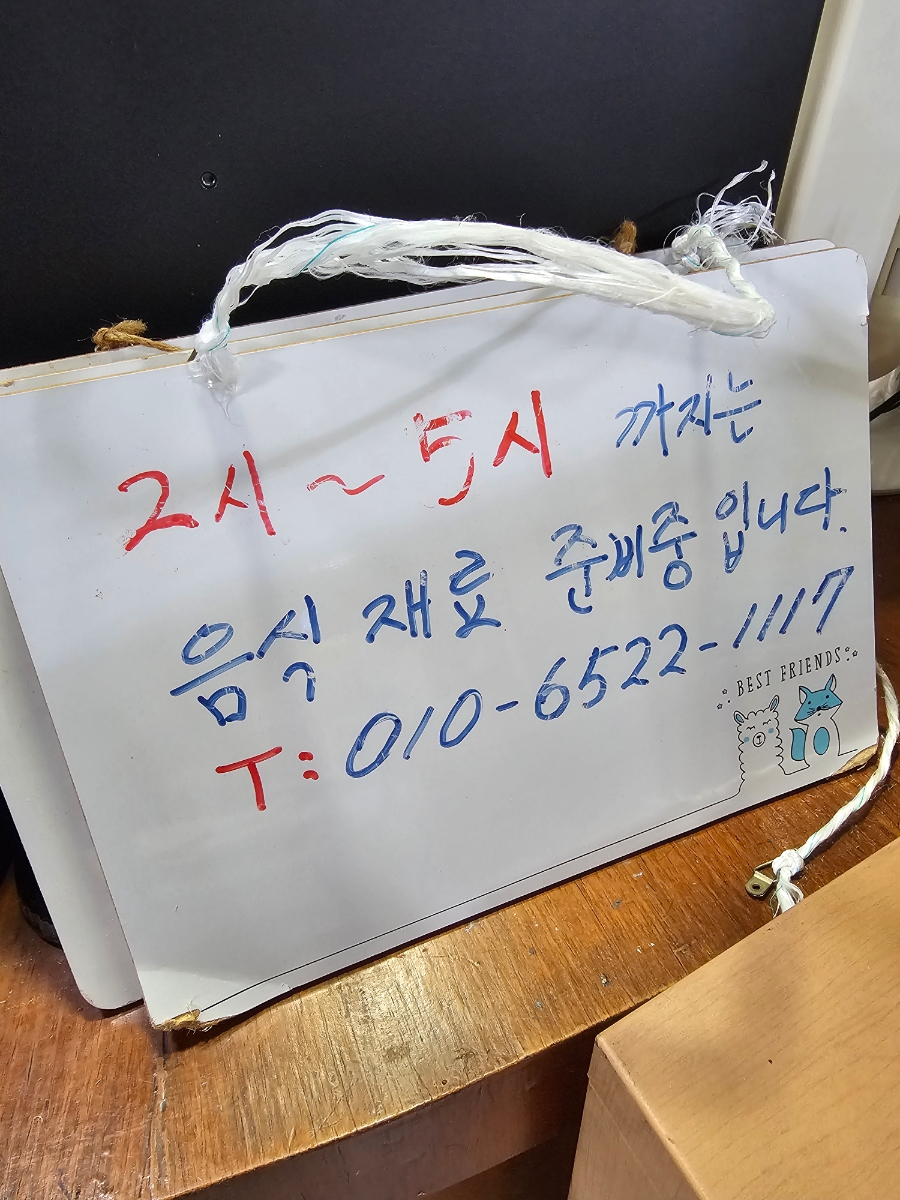 2시 ~ 5시 까지는
음식 재료 준비중 입니다.
T: 010-6522-1117
BEST FRIENDS